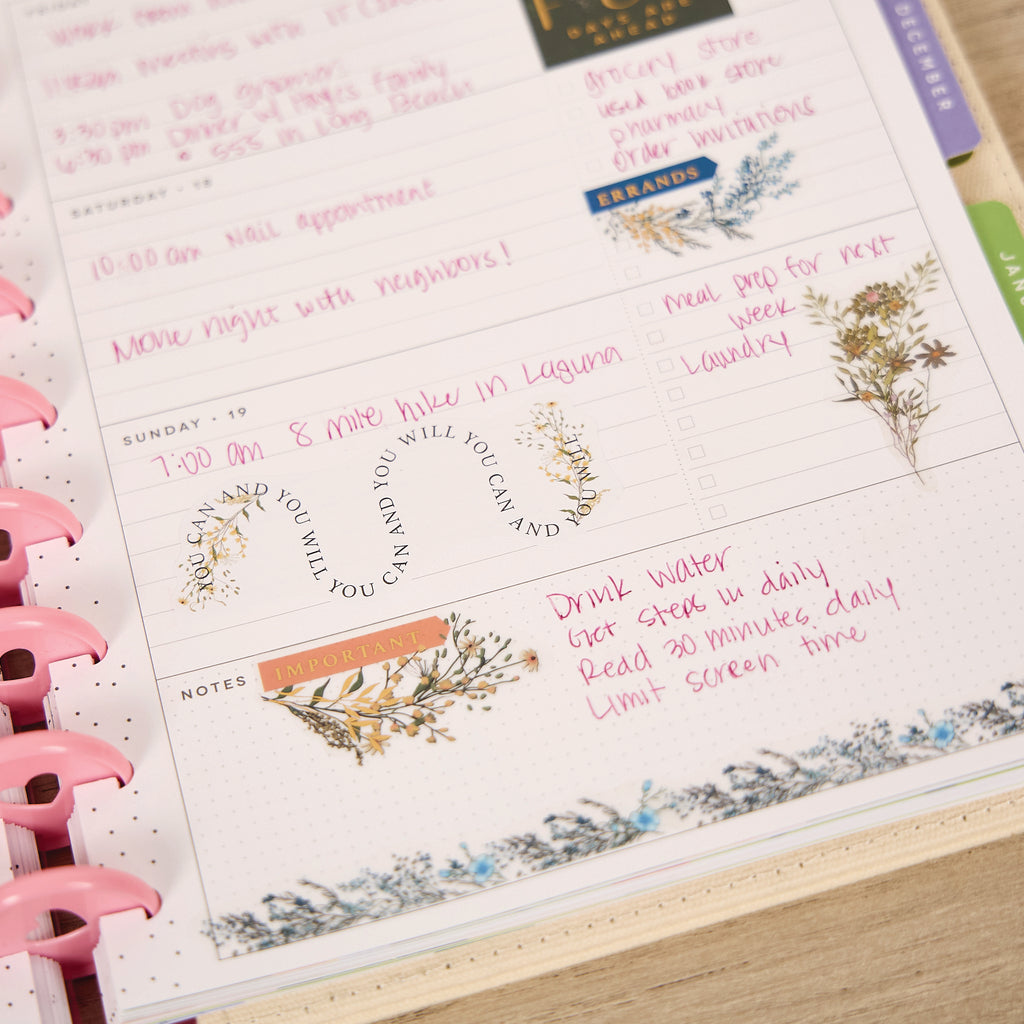 FRIDAY
11:00am Meeting with IT
3:30pm Dog groomers
6:30 pm Dinner w/ Hayes Family
• 555 in Long Beach
DAYS ARE
AHEAD
grocery store
used book store
pharmacy
order invitations
ERRANDS
SATURDAY • 18
10:00 am Nail appointment
Movie night with neighbors!
meal prep for next
week
Laundry
SUNDAY • 19
7:00 am 8 mile hike in Laguna
YOU CAN AND YOU WILL YOU CAN AND YOU WILL YOU CAN AND YOU WILL
NOTES
IMPORTANT
Drink water
Get steps in daily
Read 30 minutes daily
Limit screen time
DECEMBER